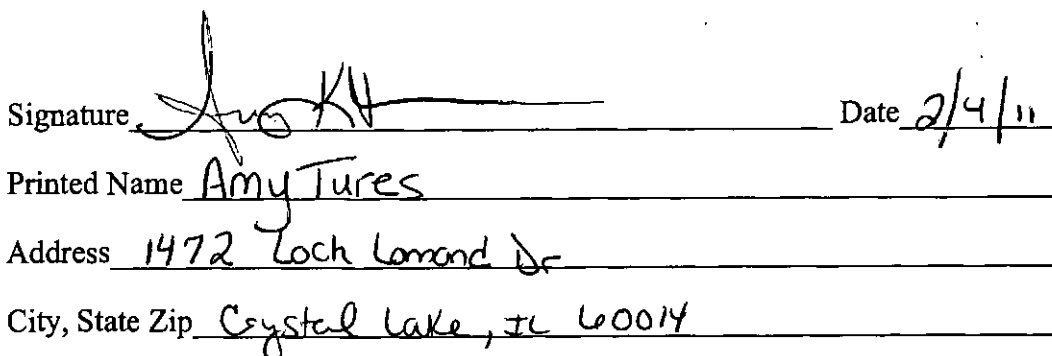 Signature Amy Date 2/4/11
Printed Name Amy Tures
Address 1472 Loch Lomond Dr
City, State Zip Crystal Lake, IL 60014